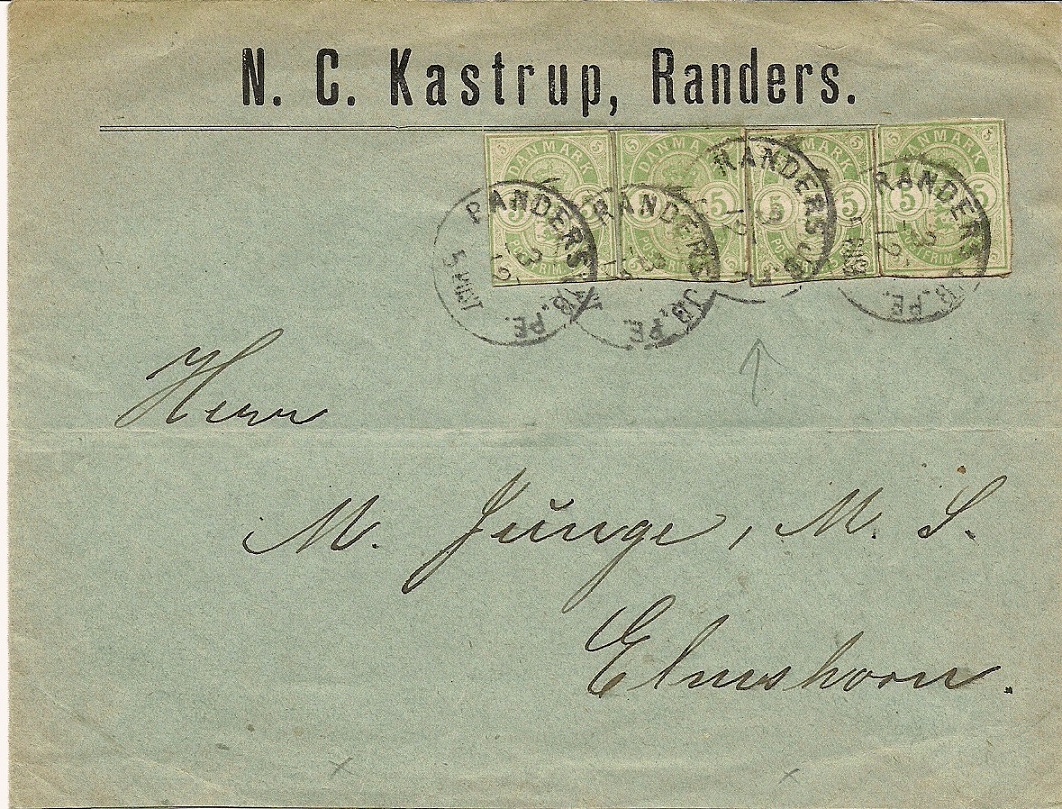 N. C. Kastrup, Randers.
5 DANMARK 5
5 5
POSTFRIM.
5 DANMARK 5
5 5
POSTFRIM.
DANMARK
5 5
POSTFRIM.
5 DANMARK 5
5 5
POSTFRIM.
RANDERS JB. PE.
RANDERS JB. PE.
RANDERS
RANDERS JB. PE.
Herr
M. Junge, M. S.
Elmshorn.